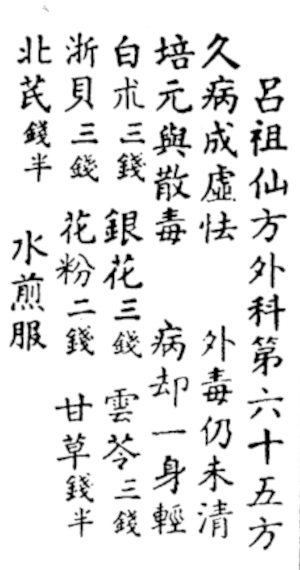 呂祖仙方外科第六十五方
久病成虛怯 外毒仍未清
培元與散毒 病却一身輕
白朮三錢 銀花三錢 雲苓三錢
浙貝三錢 花粉二錢 甘草錢半
北芪錢半 水煎服